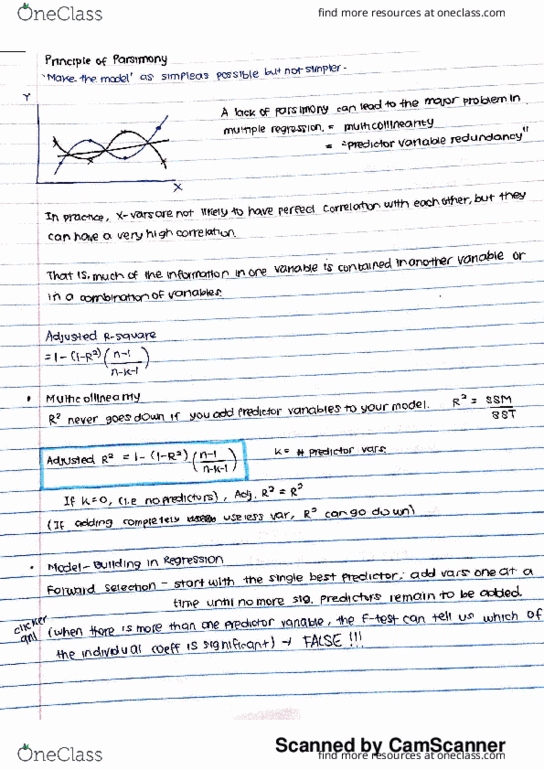 OneClass
find more resources at oneclass.com
Principle of Parsimony
'Make the model' as simple as possible but not simpler.
Y
A lack of parsimony can lead to the major problem in
multiple regression. = multicollinearity
= "predictor variable redundancy"
X
In practice, X-vars are not likely to have perfect correlation with each other, but they
can have a very high correlation.
That is, much of the information in one variable is contained in another variable or
in a combination of variables.
Adjusted R-square
= 1 - (1-R²) (n-1 / n-k-1)
• Multicollinearity
R² never goes down if you add predictor variables to your model. R² = SSM / SST
Adjusted R² = 1 - (1-R²) (n-1 / n-k-1) k = # predictor vars.
If k=0, (i.e no predictors), Adj. R² = R²
(If adding completely useless var, R² can go down)
• Model-Building in Regression
Forward selection - start with the single best predictor; add vars one at a
time until no more sig. predictors remain to be added.
clicker
qn! (when there is more than one predictor variable, the F-test can tell us which of
the individual coeff is significant) → FALSE !!!
Scanned by CamScanner
OneClass
find more resources at oneclass.com